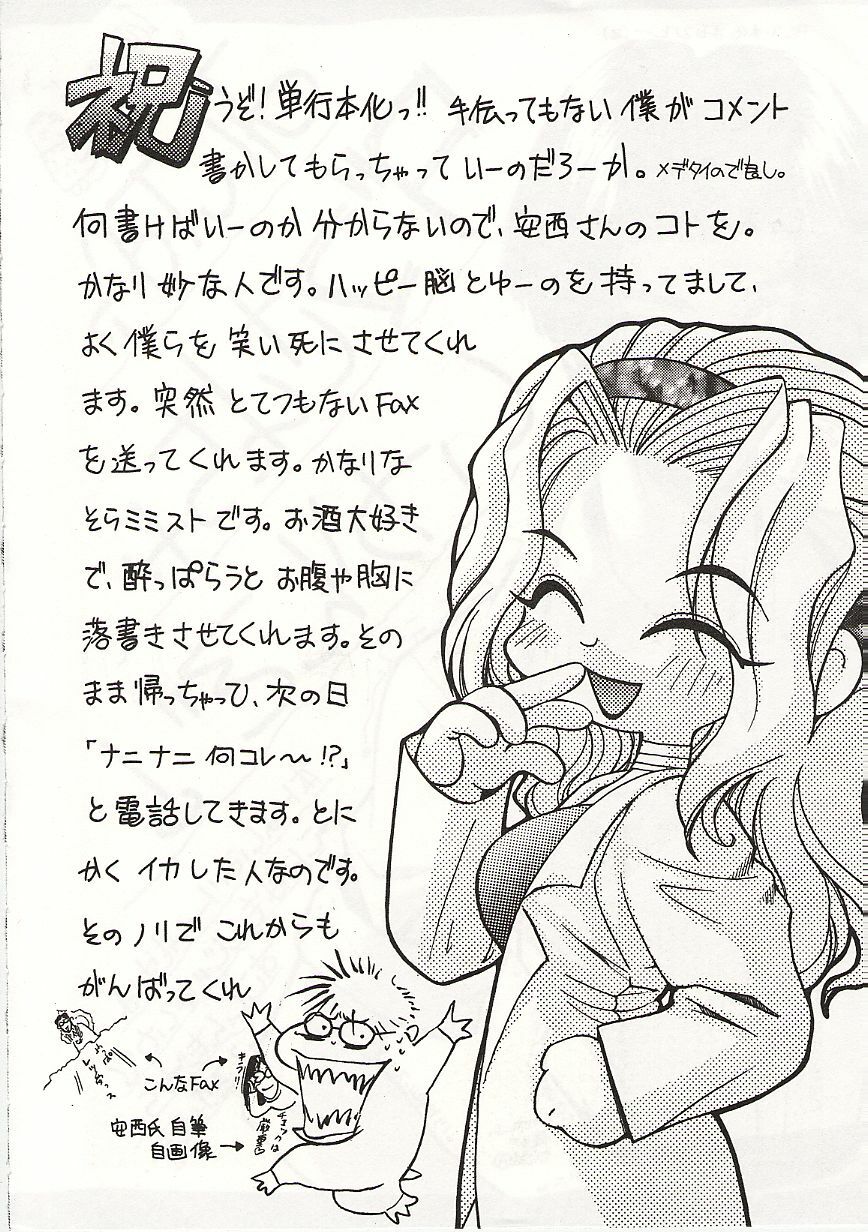 祝 うぞ!単行本化っ!! 手伝ってもない僕がコメント
書かしてもらっちゃっていーのだろーか。メデタイので良し。
何書けばいーのか分からないので、安西さんのコトを。
かなり妙な人です。ハッピー脳とゆーのを持ってまして、
よく僕らを笑い死にさせてくれ
ます。突然とてつもないFax
を送ってくれます。かなりな
そらミミストです。お酒大好き
で、酔っぱらうとお腹や胸に
落書きさせてくれます。その
まま帰っちゃって、次の日
「ナニナニ何コレ〜!?」
と電話してきます。とに
かくイカした人なのです。
そのノリでこれからも
がんばってくれ
こんなFax
安西氏自筆
自画像